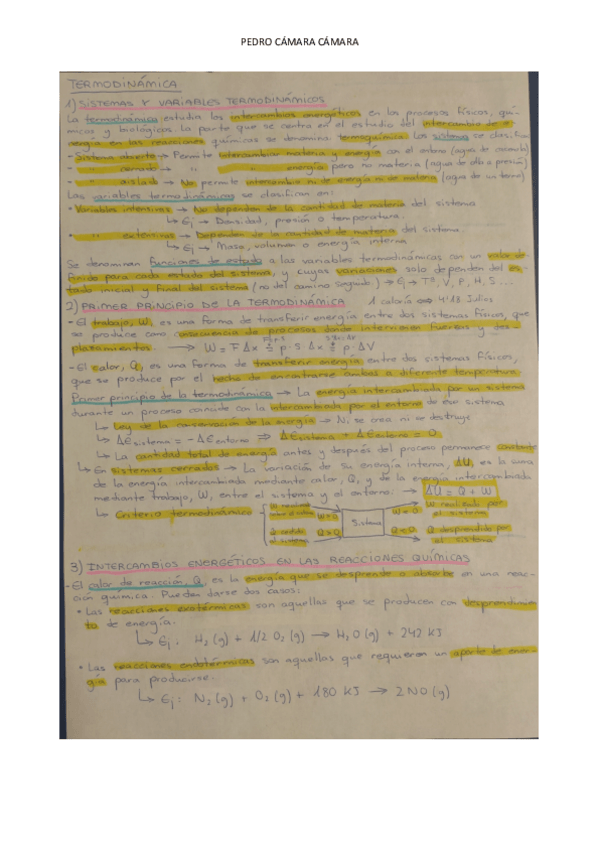 PEDRO CÁMARA CÁMARA
TERMODINÁMICA
1) SISTEMAS Y VARIABLES TERMODINÁMICOS
La termodinámica estudia los intercambios energéticos en los procesos físicos, quí-
micos y biológicos. La parte que se centra en el estudio del intercambio de e-
nergía en las reacciones químicas se denomina termoquímica. Los sistemas se clasifican
- Sistema abierto → Permite intercambiar materia y energía con el entorno (agua de
- " cerrado → " " energía pero no materia (agua de olla a presión)
- " aislado → No permite intercambio ni de energía ni de materia (agua de un termo)
Las variables termodinámicas se clasifican en:
• Variables intensivas → No dependen de la cantidad de materia del sistema
↳ Ej → Densidad, presión o temperatura.
• " extensivas → Dependen de la cantidad de materia del sistema
↳ Ej → Masa, volumen o energía interna
Se denominan funciones de estado a las variables termodinámicas con un valor de-
finido para cada estado del sistema, y cuyas variaciones solo dependen del es-
tado inicial y final del sistema (no del camino seguido) → Ej → Tª, V, P, H, S...
2) PRIMER PRINCIPIO DE LA TERMODINÁMICA 1 caloría ⇔ 4'18 Julios
- El trabajo, W, es una forma de transferir energía entre dos sistemas físicos, que
se produce como consecuencia de procesos donde intervienen fuerzas y des-
plazamientos. → W = F·Δx = p·S·Δx = p·ΔV
- El calor, Q, es una forma de transferir energía entre dos sistemas físicos,
que se produce por el hecho de encontrarse ambos a diferente temperatura.
Primer principio de la termodinámica → La energía intercambiada por un sistema
durante un proceso coincide con la intercambiada por el entorno de ese sistema
↳ Ley de la conservación de la energía → Ni se crea ni se destruye
↳ ΔEsistema = -ΔEentorno ⇒ ΔEsistema + ΔEentorno = 0.
↳ La cantidad total de energía antes y después del proceso permanece constante
↳ En sistemas cerrados → La variación de su energía interna, ΔU, es la suma
de la energía intercambiada mediante calor, Q, y de la energía intercambiada
mediante trabajo, W, entre el sistema y el entorno: → ΔU = Q + W
↳ Criterio termodinámico
W realizado
sobre el sistema W>0
Sistema
W<0 W realizado por
el sistema
Q cedido
al sistema Q>0
Q<0 Q desprendido por
el sistema
3) INTERCAMBIOS ENERGÉTICOS EN LAS REACCIONES QUÍMICAS
- El calor de reacción, Q, es la energía que se desprende o absorbe en una reac-
ción química. Pueden darse dos casos:
• Las reacciones exotérmicas son aquellas que se producen con desprendimien
to de energía.
↳ Ej: H₂(g) + 1/2 O₂(g) → H₂O(g) + 242 KJ
• Las reacciones endotérmicas son aquellas que requieren un aporte de ener-
gía para producirse.
↳ Ej: N₂(g) + O₂(g) + 180 KJ → 2NO(g)